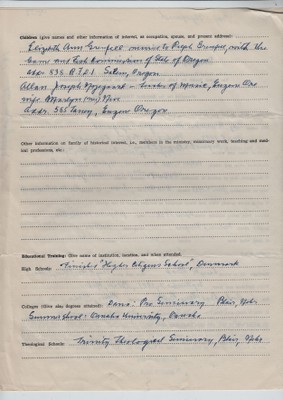 Children (give names and other information of interest, as occupation, spouse, and present address):
Elizabeth Ann married to Ralph, with the
Game and Fish Commission of State of Oregon
addr. 538 R.F.D. 1 Salem, Oregon
Allan Joseph Nygaard - teacher of Music, Eugene Ore
wife: Marilyn
Addr. 365 Eugene Oregon
Other information on family of historical interest, i.e., ministers in the ministry, missionary work, teaching and medical professions, etc.:
Educational Training: Give name of institution, location, and when attended.
High Schools: Finished "Higher Citizens School", Denmark
Colleges (Give also degrees received): Dana: Pre Seminary Blair, Nebr
Summer school: Omaha University, Omaha
Theological Schools: Trinity Theological Seminary, Blair, Nebr